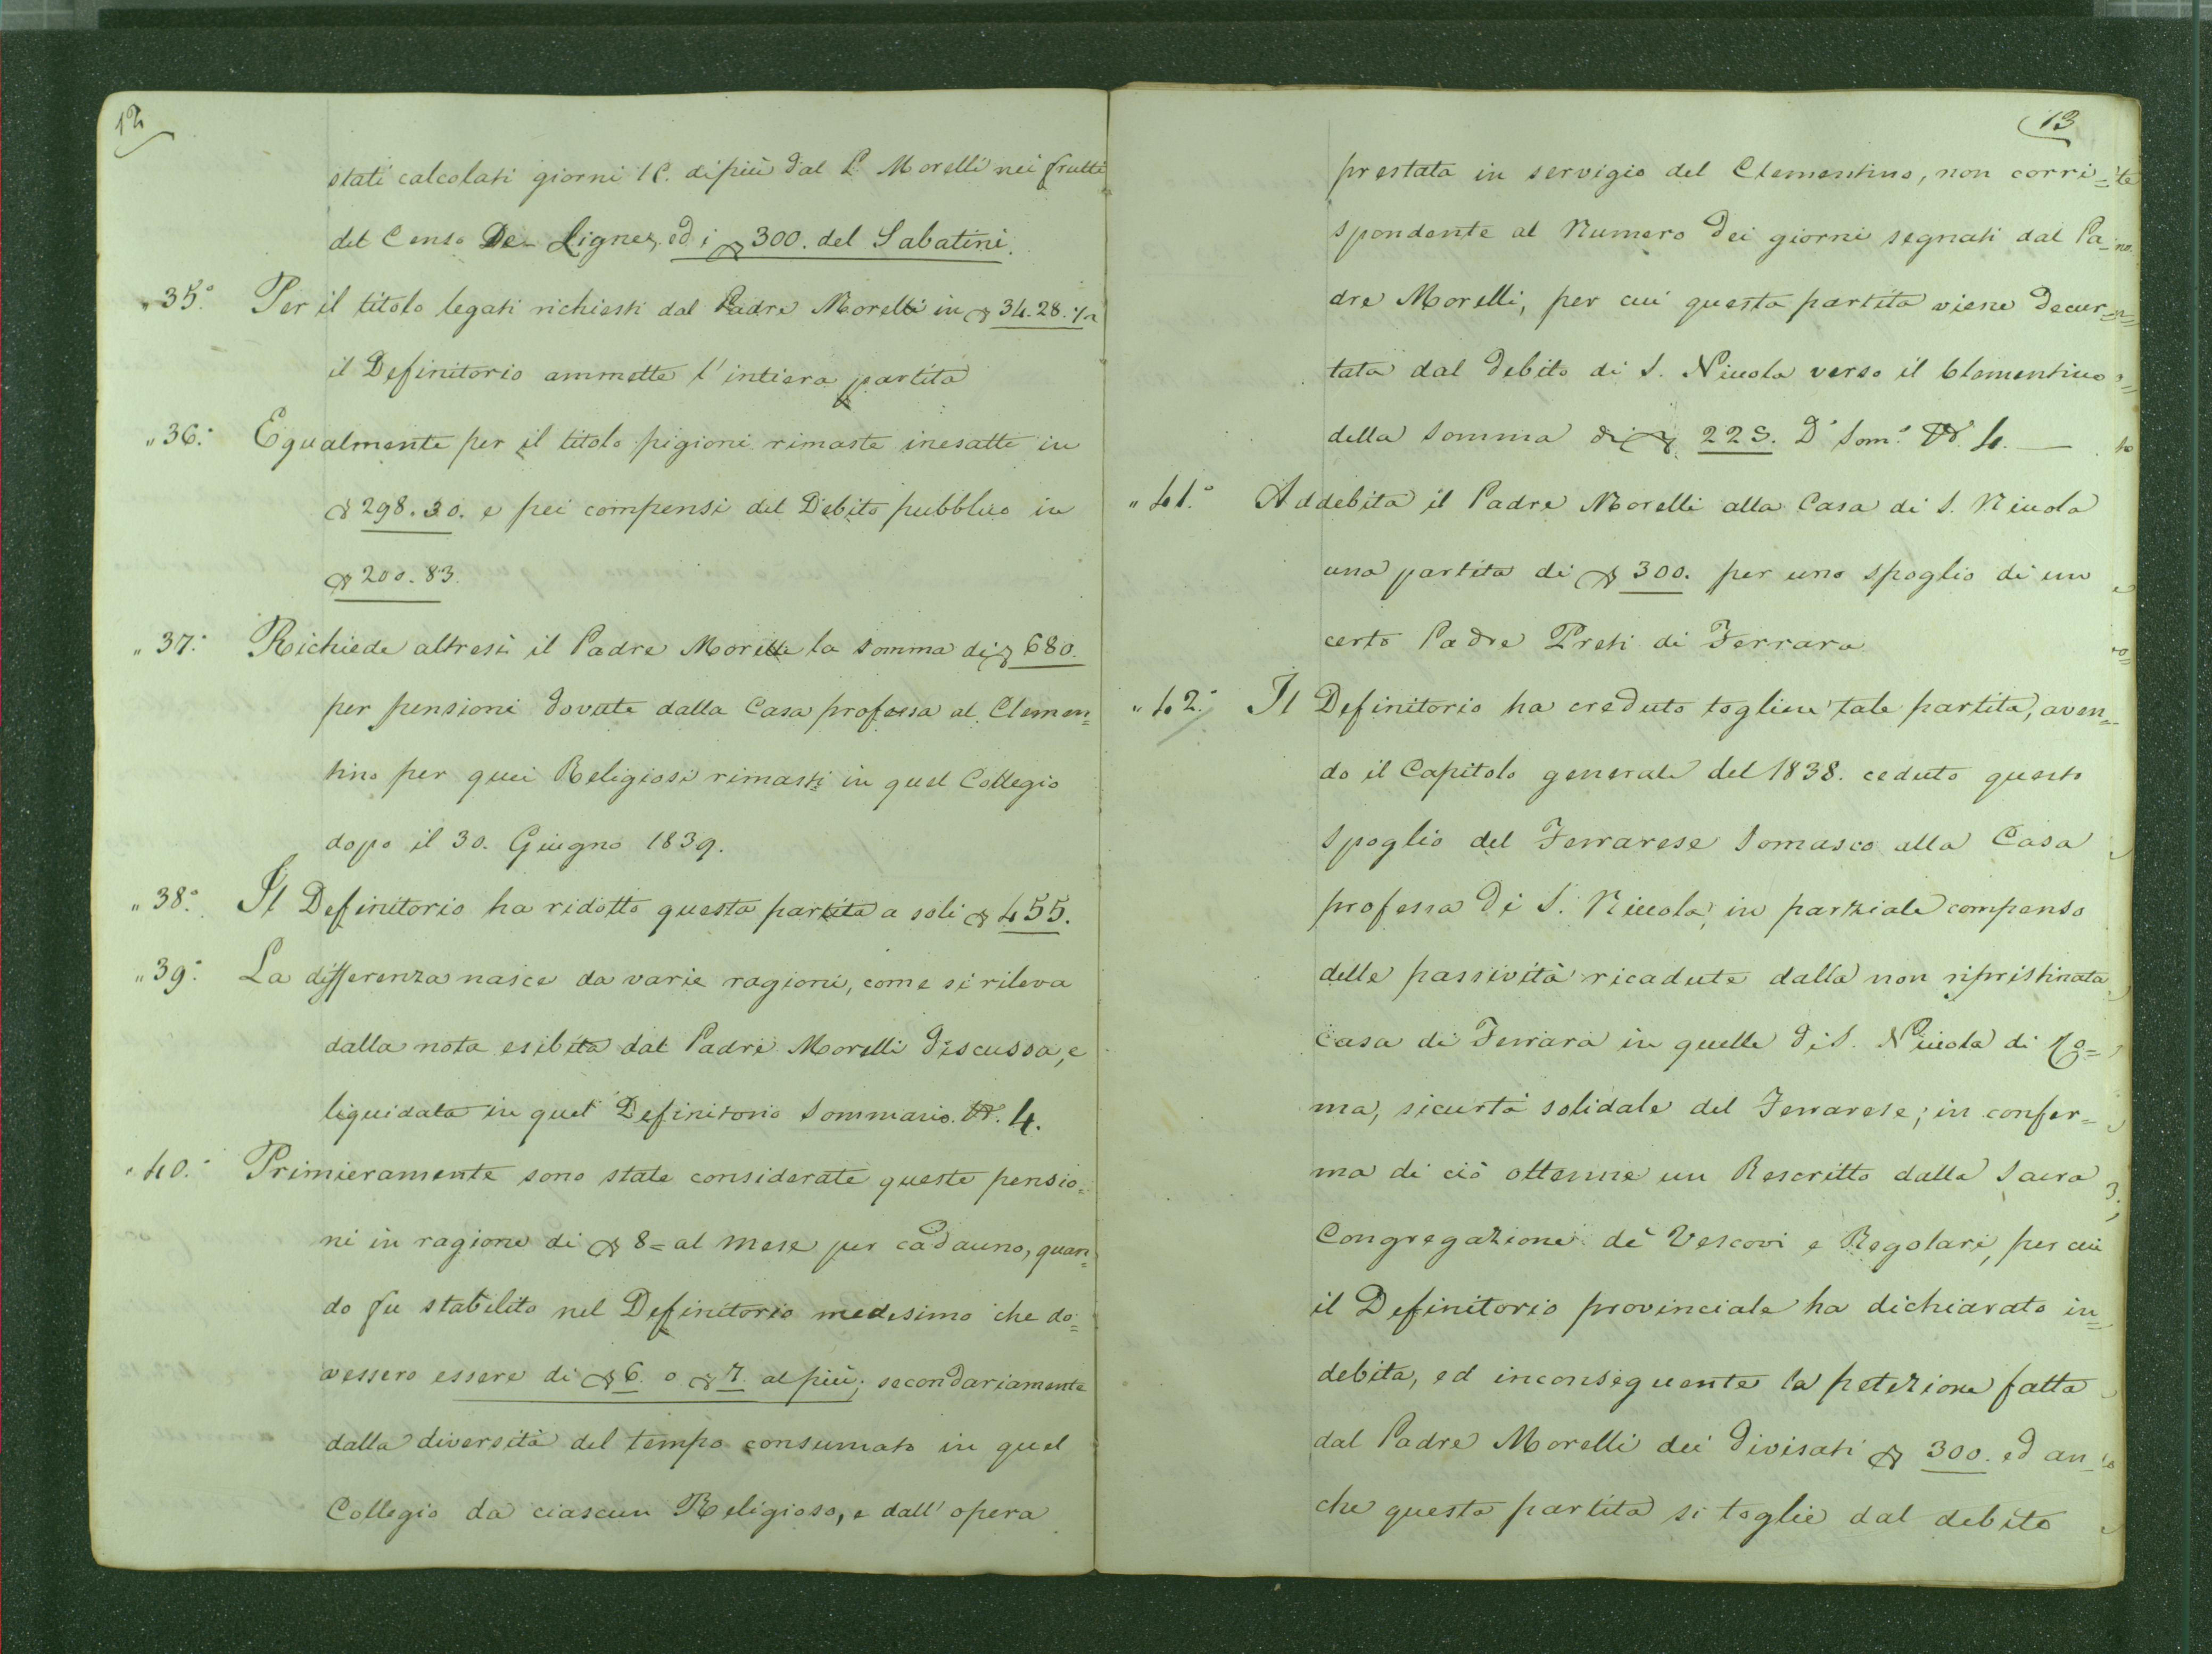 12
stati calcolati giorni 16. di più dal P. Morelli nei frutti
del Censo De-Lignes, ed i 300. del Sabatini.
„ 35.° Per il titolo legati richiesti dal Padre Morelli in 34.28.½
il Definitorio ammette l'intiera partita
„ 36.° Egualmente per il titolo pigioni rimaste inesatte in
298.30. e pei compensi del Debito pubblico in
200.83.
„ 37.° Richiede altresì il Padre Morelli la somma di 680.
per pensioni dovute dalla Casa professa al Clemen=
tino per quei Religiosi rimasti in quel Collegio
dopo il 30. Giugno 1839.
„ 38.° Il Definitorio ha ridotto questa partita a soli 455.
„ 39.° La differenza nasce da varie ragioni, come si rileva
dalla nota esibita dal Padre Morelli discussa, e
liquidata in quel Definitorio Sommario. N. 4.
„ 40.° Primieramente sono state considerate queste pensio=
ni in ragione di 8= al mese per cadauno, quan=
do fu stabilito nel Definitorio medesimo che do=
vessero essere di 6. o 7. al più; secondariamente
dalla diversità del tempo consumato in quel
Collegio da ciascun Religioso, e dall'opera
13
prestata in servigio del Clementino, non corri=
spondente al Numero dei giorni segnati dal Pa=
dre Morelli, per cui questa partita viene decur=
tata dal debito di S. Niccola verso il Clementino
della somma di 225. D.° Som.° N. 4. —
„ 41.° Addebita il Padre Morelli alla Casa di S. Niccola
una partita di 300. per uno spoglio di un
certo Padre Preti di Ferrara
„ 42.° Il Definitorio ha creduto toglier tale partita, aven=
do il Capitolo generale del 1838. ceduto questo
spoglio del Ferrarese Somasco alla Casa
professa di S. Niccola, in parziale compenso
delle passività ricadute dalla non ripristinata
Casa di Ferrara in quelle di S. Niccola di Ro=
ma, sicurtà solidale del Ferrarese; in confer=
ma di ciò ottenne un Rescritto dalla Sacra
Congregazione de' Vescovi e Regolari, per cui
il Definitorio provinciale ha dichiarato in=
debita, ed inconseguente la petizione fatta
dal Padre Morelli dei divisati 300. ed an=
che questa partita si toglie dal debito